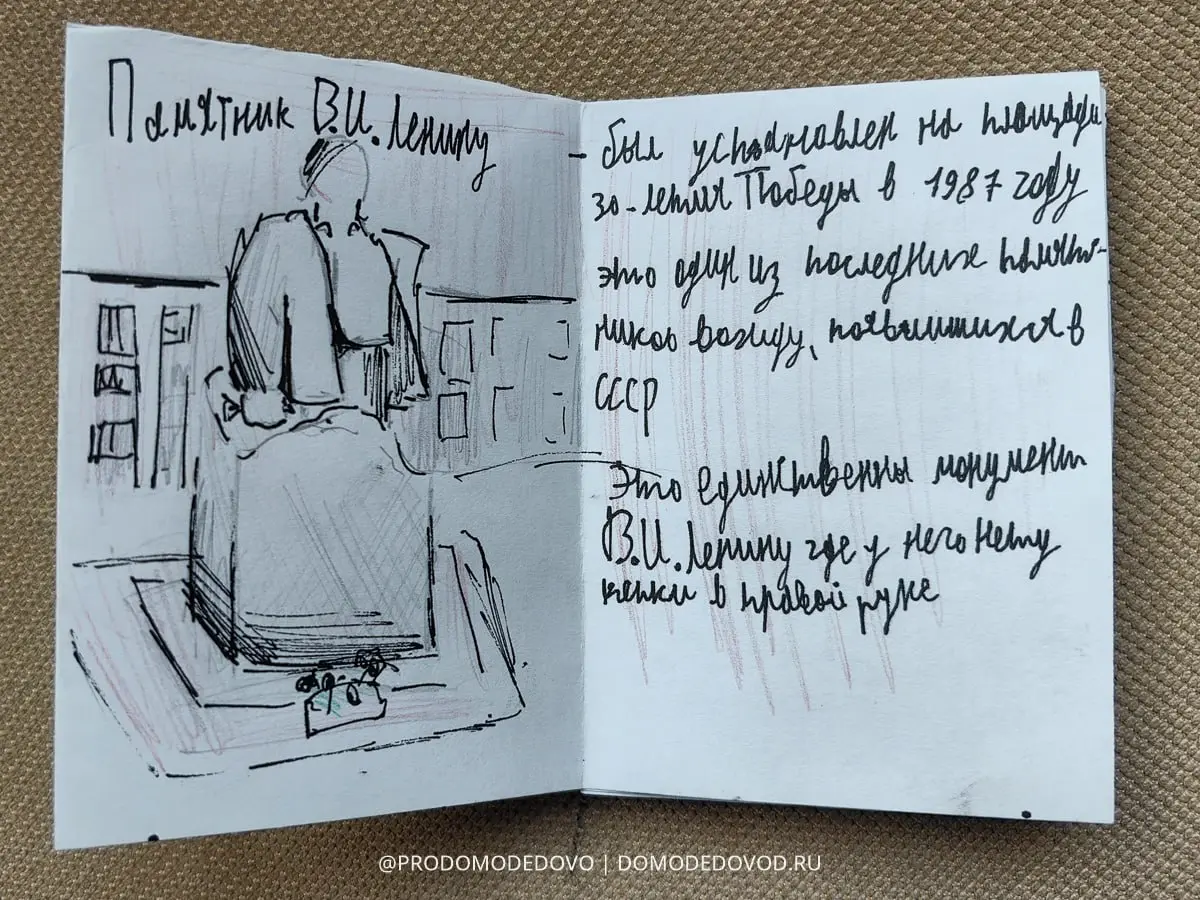 Памятник В.И. Ленину
– был установлен на площади
30-летия Победы в 1987 году
это один из последних памят-
ников вождю, появившихся в
СССР
Это единственны монумент
В.И. Ленину где у него нету
кепки в правой руке
@PRODOMODEDOVO | DOMODEDOVOD.RU